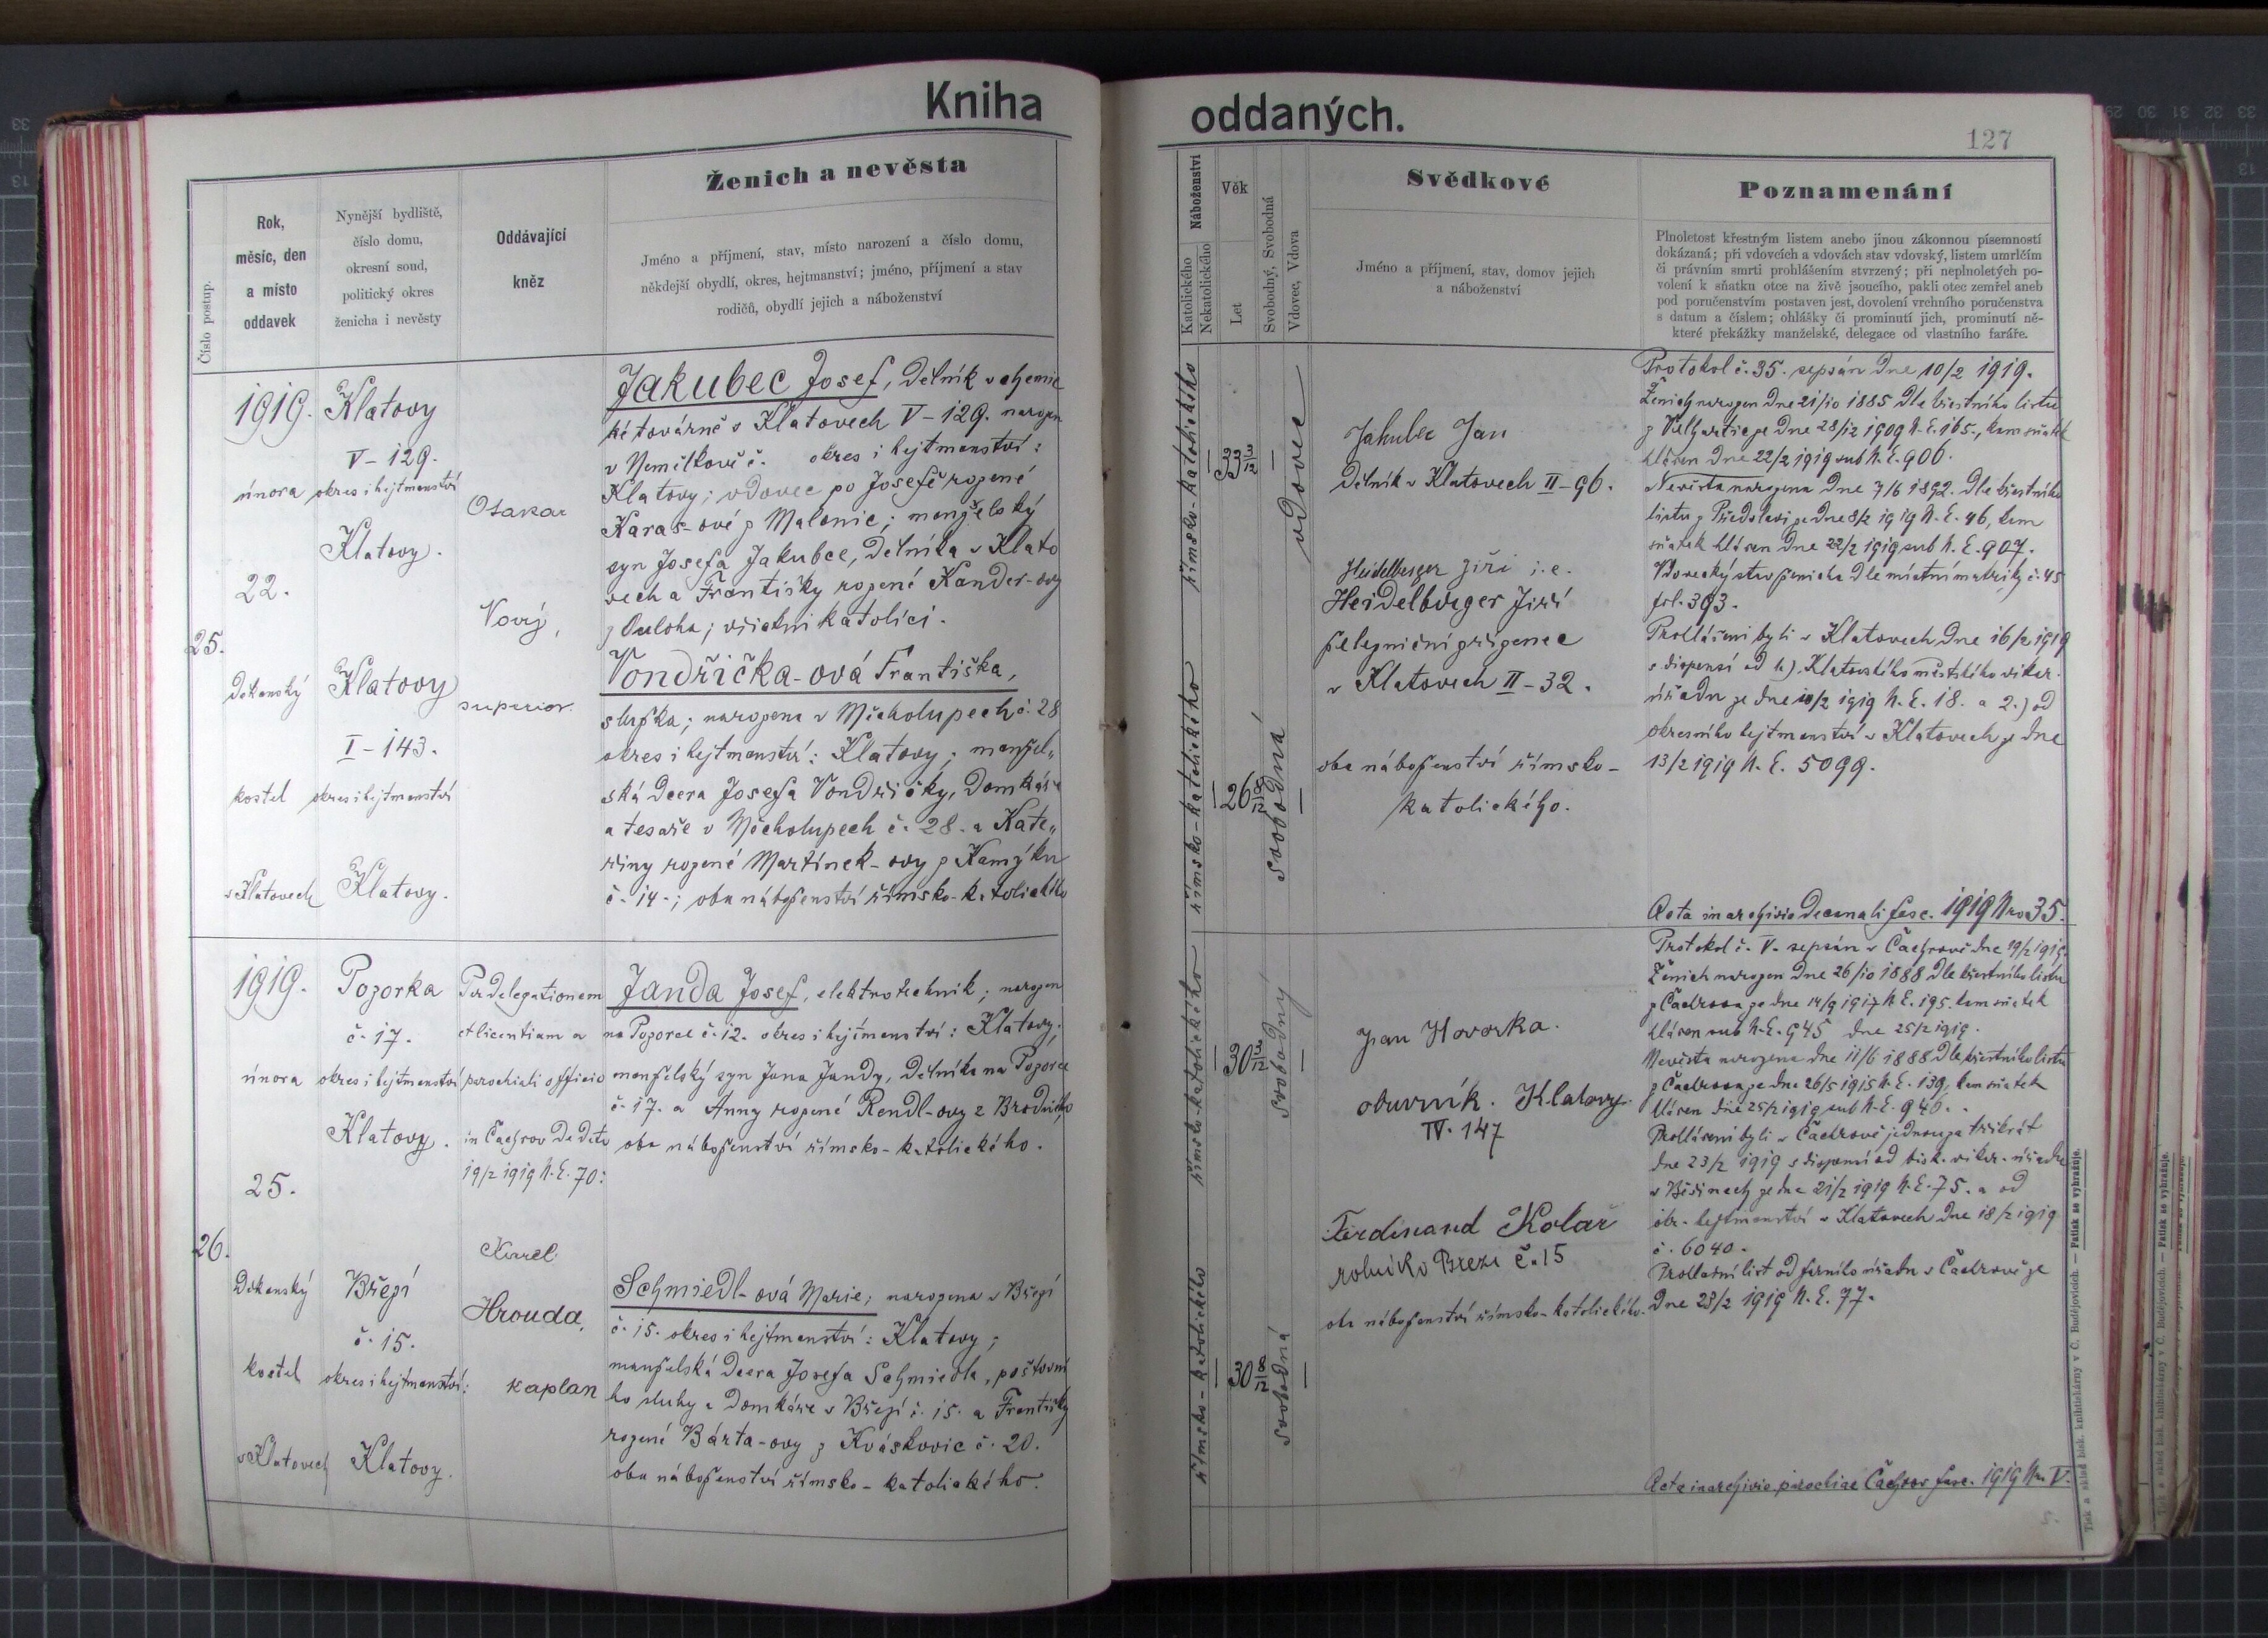 Kniha
oddaných.
127
Číslo postup.
Rok,
měsíc, den
a místo
oddavek
Nynější bydliště,
číslo domu,
okresní soud,
politický okres
ženicha i nevěsty
Oddávající
kněz
Ženich a nevěsta
Jméno a příjmení, stav, místo narození a číslo domu,
někdejší obydlí, okres, hejtmanství; jméno, příjmení a stav
rodičů, obydlí jejich a náboženství
Náboženství
Katolického
Nekatolického
Věk
Let
Svobodný, Svobodná
Vdovec, Vdova
Svědkové
Jméno a příjmení, stav, domov jejich
a náboženství
Poznamenání
Plnoletost křestným listem anebo jinou zákonnou písemností
dokázaná; při vdovcích a vdovách stav vdovský, listem umrlčím
či právním smrti prohlášením stvrzený; při neplnoletých po-
volení k sňatku otce na živě jsoucího, pakli otec zemřel aneb
pod poručenstvím postaven jest, dovolení vrchního poručenstva
s datum a číslem; ohlášky či prominutí jich, prominutí ně-
které překážky manželské, delegace od vlastního faráře.
25.
1919.
února
22.
Děkanský
kostel
v Klatovech
Klatovy
V-129.
okres i hejtmanství
Klatovy.
Klatovy
I-143.
okres i hejtmanství
Klatovy.
Otakar
Nový,
superior.
Jakubec Josef, dělník v chemic
ké továrně v Klatovech V-129. narozen
v Nemilkově č. okres i hejtmanství:
Klatovy; vdovec po Josefě rozené
Karas-ové z Malonic; manželský
syn Josefa Jakubce, dělníka v Klato
vech a Františky rozené Kander-ovy
z Ouloha; všichni katolíci.
Vondřička-ová Františka,
služka; narozena v Měcholupech č. 28
okres i hejtmanství: Klatovy; manžel„
ská dcera Josefa Vondřičky, domkáře
a tesaře v Měcholupech č. 28. a Kate„
řiny rozené Martínek-ovy z Kamýku
č. 14.; oba náboženství římsko-katolického
římsko-katolického
33 3/12
vdovec
římsko-katolického
26
svobodná
Jakubec Jan
dělník v Klatovech II-96.
Heidelberger Jiří i.e.
Heidelburger Jiří
železniční zřízenec
v Klatovech II-32.
oba náboženství římsko-
katolického.
Protokol č. 35. sepsán dne 10/2 1919.
Ženich narozen dne 21/10 1885 dle křestního listu
z Velhartic ze dne 28/12 1909 N. E. 165., kam sňatek
hlášen dne 22/2 1919 sub N. E. 906.
Nevěsta narozena dne 7/6 1892. dle křestního
listu z Předslavi ze dne 8/2 1919 N. E. 46, kam
sňatek hlášen dne 22/2 1919 sub N. E. 907.
Vdovecký stav ženicha dle místní matriky č. 45
fol. 303.
Prohlášeni byli v Klatovech dne 16/2 1919
s dispensí od 1.) Klatovského městského vikar.
úřadu ze dne 10/2 1919 N. E. 18. a 2.) od
okresního hejtmanství v Klatovech ze dne
13/2 1919 N. E. 5099.
Acta in archivio decanali fasc. 1919 Nro 35.
26.
1919.
února
25.
Děkanský
kostel
v Klatovech
Pozorka
č. 17.
okres i hejtmanství
Klatovy.
Březí
č. 15.
okres i hejtmanství:
Klatovy.
Per delegationem
et licentiam a
parochiali officio
in Čachrov de dato
19/2 1919 N. E. 70:
Karel
Hrouda,
kaplan
Janda Josef, elektrotechnik; narozen
na Pozorce č. 12. okres i hejtmanství: Klatovy;
manželský syn Jana Jandy, dělníka na Pozorce
č. 17. a Anny rozené Rendl-ovy z
oba náboženství římsko-katolického.
Schmiedl-ová Marie; narozena v Březí
č. 15. okres i hejtmanství: Klatovy;
manželská dcera Josefa Schmiedla, poštovní
ho sluhy a domkáře v Březí č. 15. a Františky
rozené Bárta-ovy z Kváskovic č. 20.
oba náboženství římsko-katolického.
římsko-katolického
30 3/12
svobodný
římsko-katolického
30 8/12
svobodná
Jan Hovorka.
obuvník. Klatovy.
IV. 147
Ferdinand Kolař
rolník v Březi č. 15
oba náboženství římsko-katolického.
Protokol č. V. sepsán v Čachrově dne 19/2 1919.
Ženich narozen dne 26/10 1888 dle křestního listu
z Čachrova ze dne 14/9 1917 N. E. 195. kam sňatek
hlášen sub N. E. 945 dne 25/2 1919.
Nevěsta narozena dne 11/6 1888 dle křestního listu
z Čachrova ze dne 26/5 1915 N. E. 139, kam sňatek
hlášen dne 25/2 1919 sub N. E. 946.
Prohlášeni byli v Čachrově jednou za třikrát
dne 23/2 1919 s dispensí od bisk. vikar. úřadu
v Běšinech ze dne 21/2 1919 N. E. 75. a od
okr. hejtmanství v Klatovech dne 18/2 1919
č. 6040.
Prohlašní list od farního úřadu v Čachrově ze
dne 23/2 1919 N. E. 77.
Acta in archivio parochiae Čachrov fasc. 1919 Nro V.
Tisk a sklad bisk. knihtiskárny v Č. Budějovicích. — Patisk se vyhražuje.